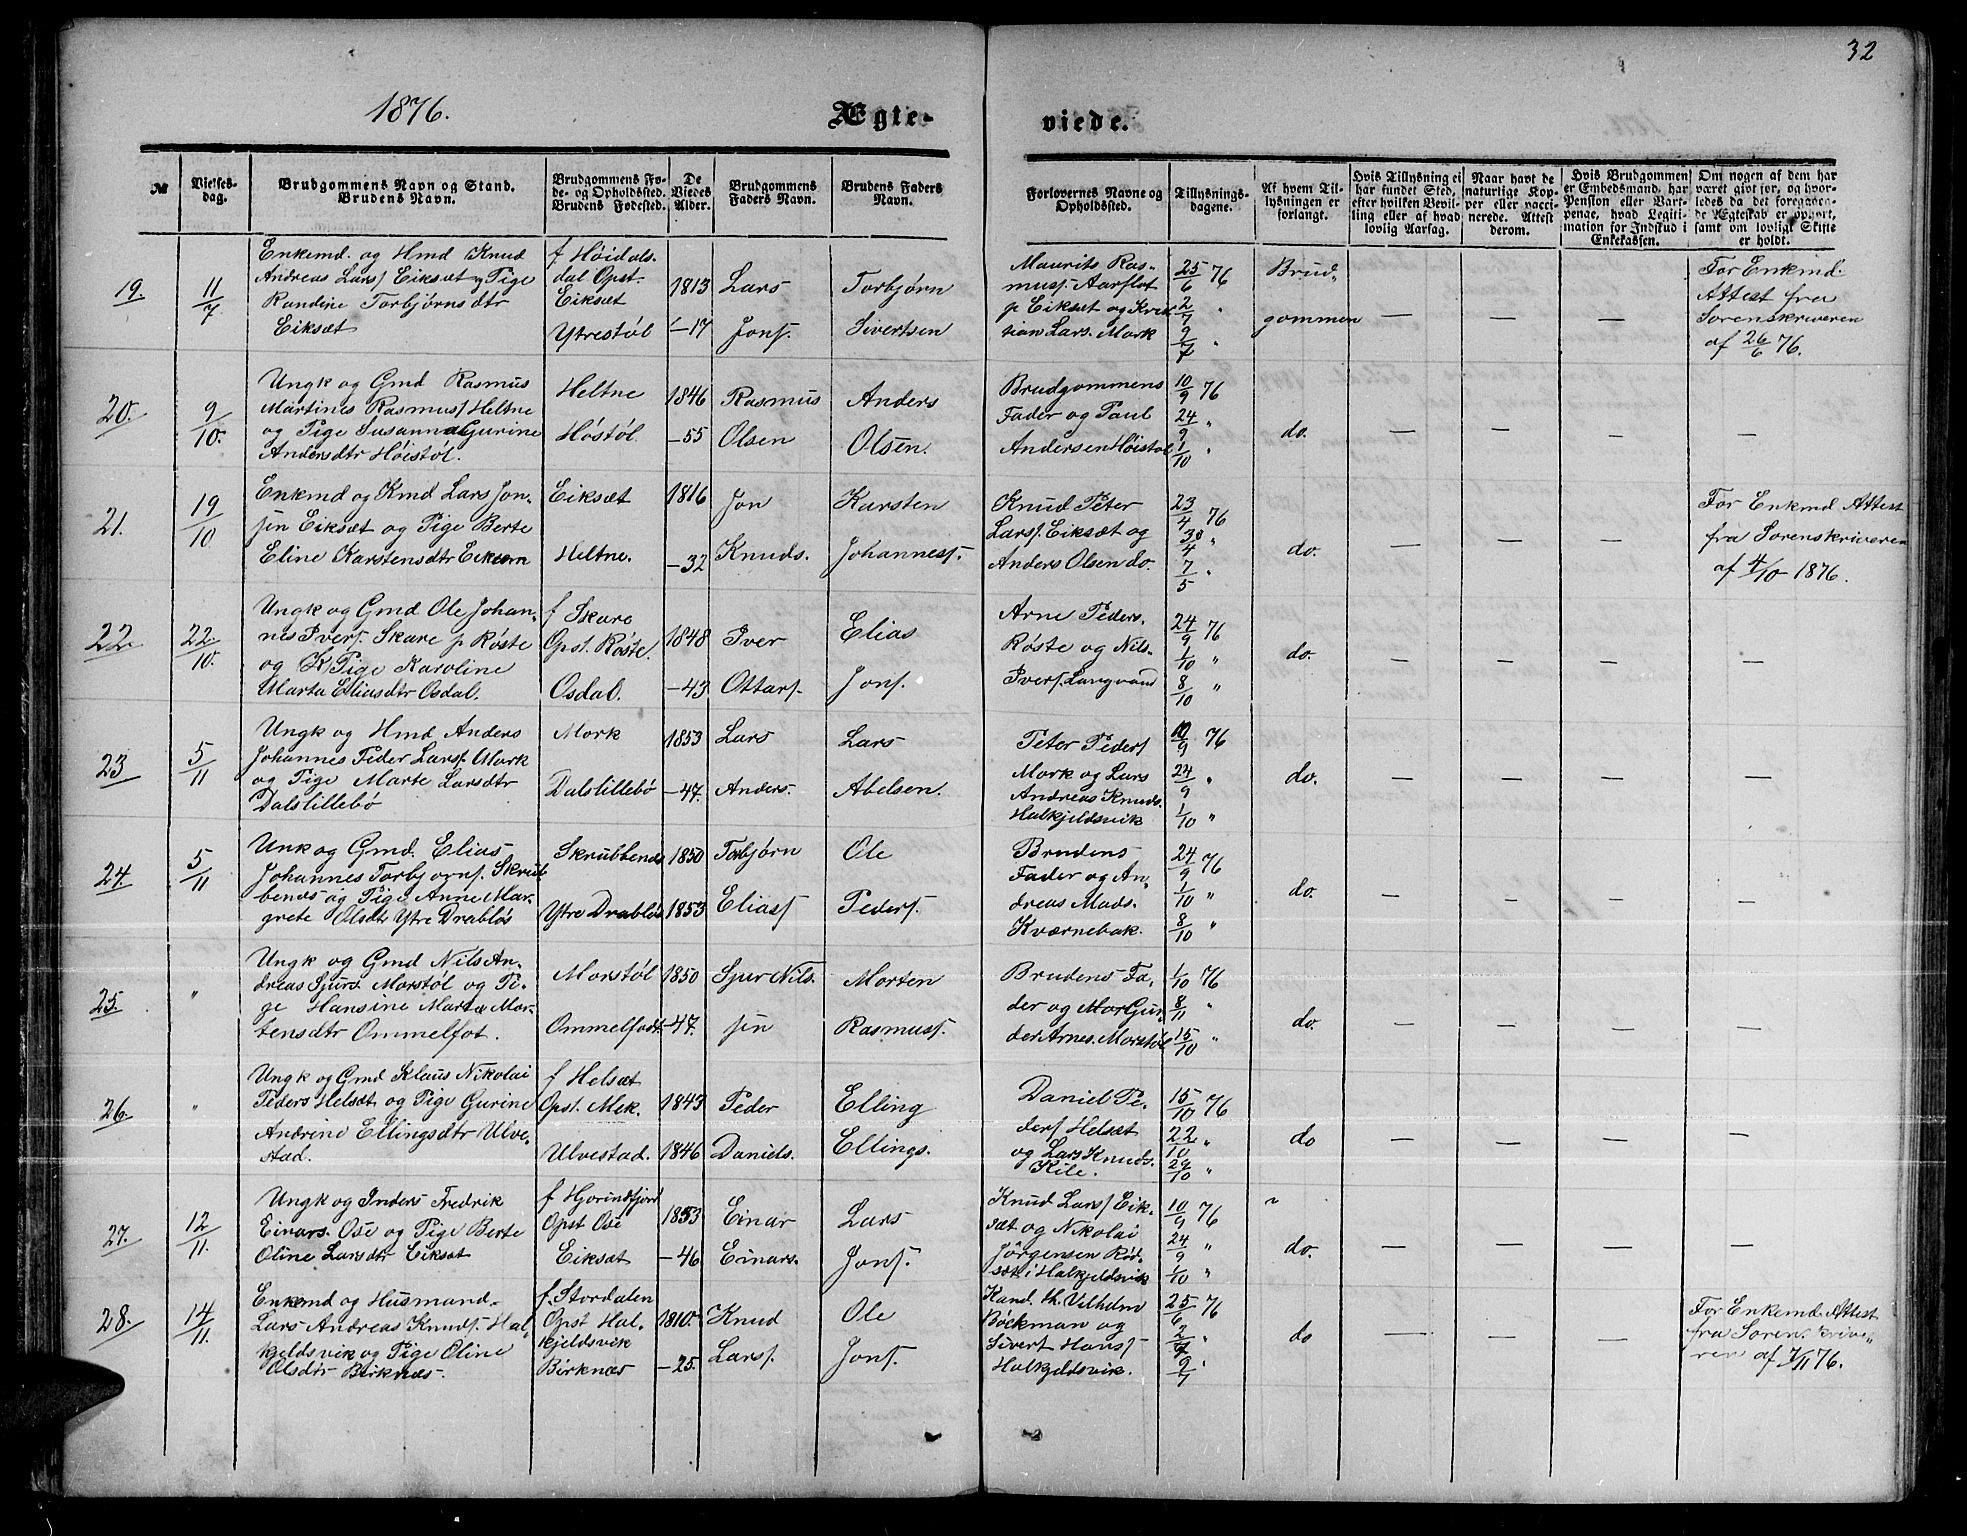 32
1876.
Ægte-
viede.
№
Vielses-
dag.
Brudgommens Navn og Stand.
Brudens Navn.
Brudgommens Fø-
de- og Opholdssted.
Brudens Fødested.
De
Viedes
Alder.
Brudgommens
Faders Navn.
Brudens Faders
Navn.
Forlovernes Navne og
Opholdssted.
Tillysnings-
dagene.
Af hvem Til-
lysningen er
forlangt.
Hvis Tillysning ei
har fundet Sted,
efter hvilken Bevil-
ling eller af hvad
lovlig Aarsag.
Naar havt de
naturlige Kop-
per eller vacci-
nerede. Attest
derom.
Hvis Brudgommen
er Embedsmand, har
Pension eller Vart-
penge, hvad Legiti-
mation for Indskud i
Enkekassen.
Om nogen af dem har
været givt før, og hvor-
ledes da det foregaaen-
de Ægteskab er ophørt,
samt om lovligt Skifte
er holdt.
19.
11/7
Enkemd. og Hmd Knud
Andreas Larsf Eiksæt og Pige
Randine Torbjørnsdtr
Eiksæt
f. Høidals-
dal Opst.
Eiksæt
Ytrestøl
1813
-17
Lars
Jonf.
Torbjørn
Sivertsen
Maurits Ras-
musf. Aarflot
p Eiksæt og Krist
ian Lars. Mork
25/6 76
2/7 "
9/7 "
Brud-
gommen
—
—
—
For Enkmd.
Attest fra
Sorenskriveren
af 26/6 76.
20.
9/10.
Ungk og Gmd Rasmus
Martines Rasmusf Heltne
og Pige Susanna Gurine
Andersdtr Høistøl.
Heltne
Høstøl
1846
-55
Rasmus
Olsen
Anders
Olsen.
Brudgommens
Fader og Paul
Andersen Høistøl
10/9 76
24/9 "
1/10 "
do.
—
—
—
—
21.
19/10
Enkmd og Kmd Lars Jon-
sen Eiksæt og Pige Berte
Eline Karstensdtr Eiksem
Eiksæt
Heltne.
1816
-32
Jon
Knuds.
Karsten
Johannesf.
Knud Peter
Larsf. Eiksæt og
Anders Olsen do.
23/4 76
30/4 "
7/5 "
do.
—
—
—
For Enkmd Attest
fra Sorenskriveren
af 4/10 1876.
22
22./10.
Ungk og Gmd Ole Johan-
nes Iverf. Skare p Røste
og K Pige Karoline
Marta Eliasdtr Osdal.
f Skare
Opst. Røste.
Osdal.
1848
-43
Iver
Ottarf.
Elias
Jonf.
Arne Peders.
Røste og Nils-
Iverf. Langvand
24/9 76
1/10 "
8/10 "
do.
—
—
—
—
23
5/11
Ungk og Hmd Anders
Johannes Peder Larsf. Mork
og Pige Marte Larsdtr
Dalslillebø
Mork
Dalslillebø
1853
-47.
Lars
Anders.
Lars
Abelsen.
Peter Pedersf
Mork og Lars
Andreas Knuds.
Halkjeldsvik
10/9 76
24/9 "
1/10 "
do.
—
—
—
—
24.
5/11
Unk og Gmd. Elias
Johannes Torbjørnf. Skrub
benes og Pige Anne Mar-
grete Olsdt Ytre Drabløs
Skrubbenes
Ytre Drabløs
1850
1853
Torbjørn
Eliasf
Ole
Pederf.
Brudens
Fader og An-
dreas Mads.
Kværnebak.
24/9 76
1/10 "
8/10 "
do.
—
—
—
—
25.
"
Ungk og Gmd Nils An-
dreas Sjurs. Morstøl og Pi-
ge Hansine Marta Mor-
tensdtr Ommelfot.
Morstøl
Ommelfodt
1850
-47.
Sjur Nils.
sen
Morten
Rasmusf.
Brudens Fa-
der og
der Arnes. Morstøl
1/10 76
8/11 "
15/10 "
do.
—
—
—
—
26.
"
Ungk og Gmd Klaus Nikolai
Peders Helsæt og Pige Gurine
Andrine Ellingsdtr Ulve-
stad.
f Helsæt
Opst. Mek.
Ulvestad.
1843
1846
Peder
Daniels.
Elling
Ellings.
Daniel Pe-
derf Helsæt
og Lars Knuds.
Kile.
15/10 76
22/10 "
29/10 "
do
—
—
—
—
27.
12/11.
Ungk og Inders Fredrik
Einars. Ose og Pige Berte
Oline Larsdtr Eiksæt
f Hjorindfjord
Opst Ose
Eiksæt
1853
-46
Einar
Einars.
Lars
Jonf.
Knud Larsf Eik-
sæt og Nikolai
Jørgensen Rød-
sæt i Halkjeldsvik
10/9 76
24/9 "
1/10 "
"
do.
—
—
—
—
28.
14/11.
Enkemd og Husmand
Lars Andreas Knudf. Hal-
kjeldsvik og Pige Oline
Olsdtr Birknes.
f. Stordalen
Opst Hal-
kjeldsvik
Birknæs
1810.
-25.
Knud
Larsf.
Ole
Jonf.
Kand. th. Vilhelm
Bøckman og
Sivert Hansf
Halkjeldsvik.
25/6 76
2/7 "
9/7 "
do
—
—
—
For Enkemd. Attest
fra Soren. krive-
ren af 7/11 76.